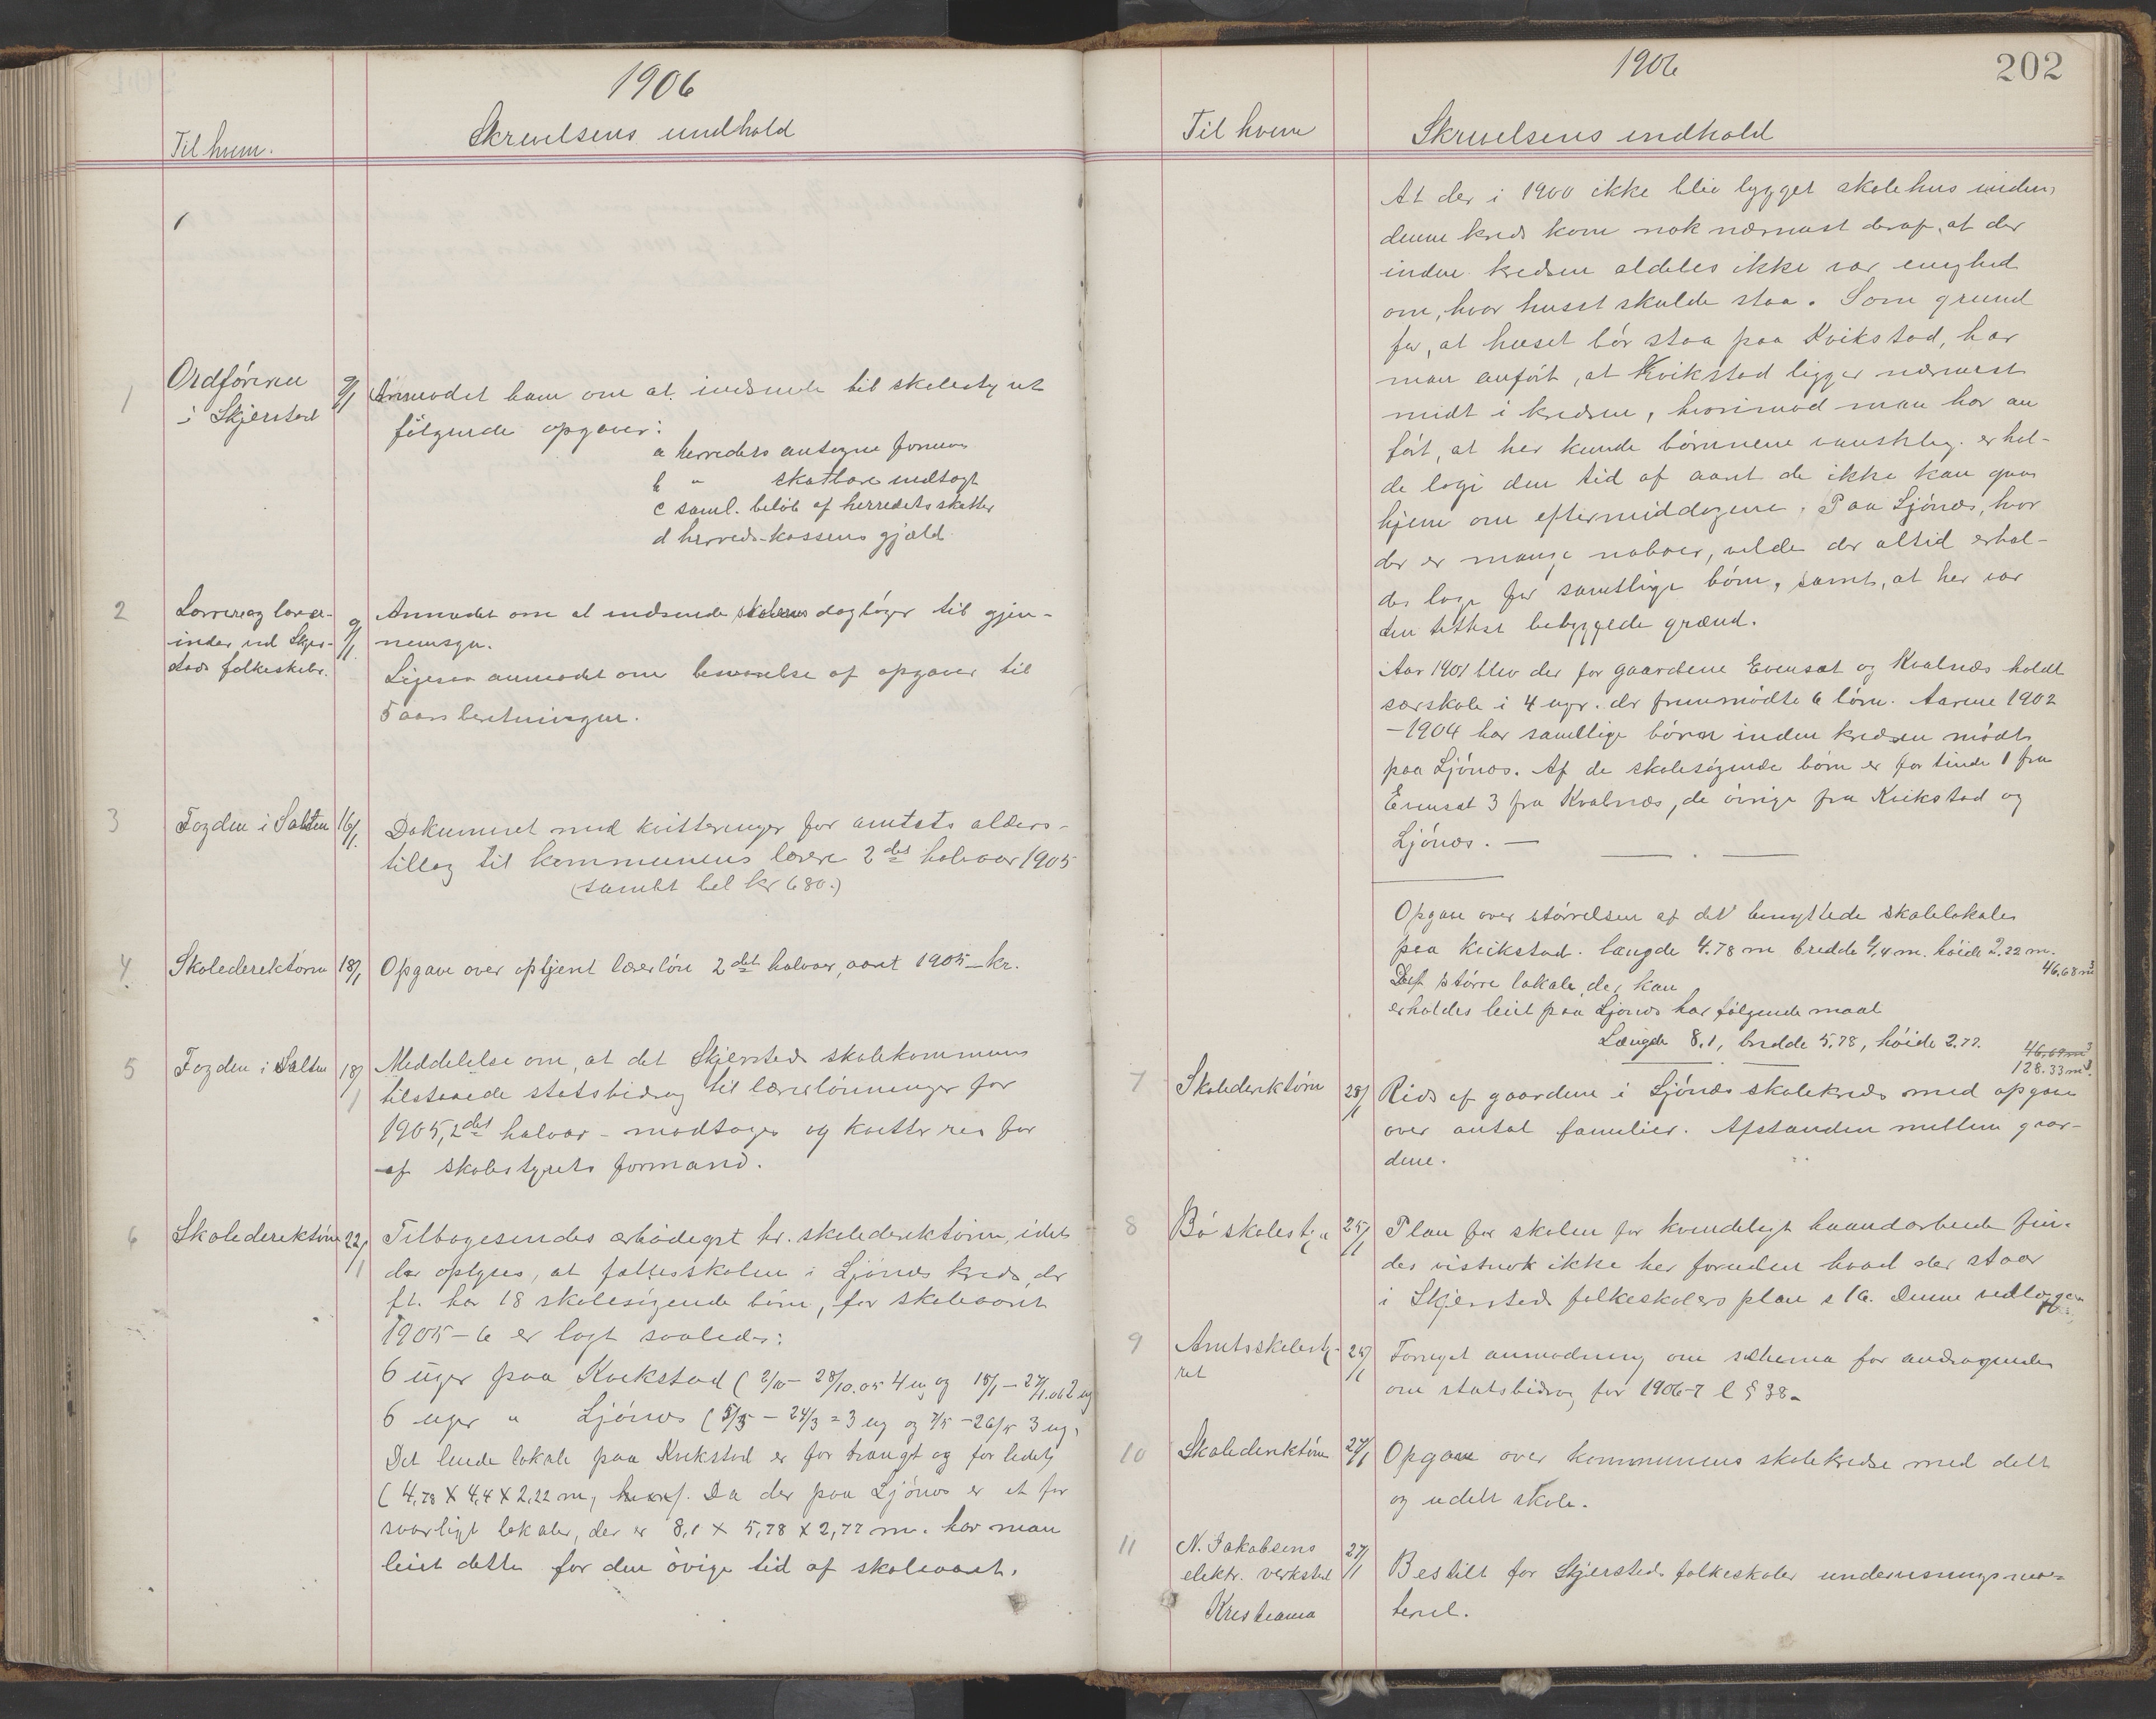 1906
Til hvem.
Skrivelsens indhold
1
Ordføreren
i Skjerstad
9/1
Anmodet ham om at indsende til skolestyret
følgende opgaver:
a herredets antagne formue
b " skatbare indtægt
c saml. beløb af herredets skatter
d herreds-kassens gjæld
2
Lærere og lærer-
inder ved Skjer-
stads folkeskoler.
9/1
Anmodet om at indsende skolernes dagbøger til gjen-
nemsyn.
Ligesaa anmodet om besvarelse af opgaver til
5 aars beretningen.
3
Fogden i Salten
16/1
Dokumnet med kvitteringer for amtets alders-
tillæg til kommunens lærere 2det halvaar 1905
(samlet bel kr 680.)
4
Skoledirektøren
18/1
Opgave over optjent lærerløn 2det halvaar, aaret 1905 – kr.
5
Fogden i Salten
18/1
Meddelelse om, at det Skjerstad skolekommune
tilstaaede statsbidrag til lærerlønninger for
1905, 2det halvaar – modtages og kvitteres for
af skolestyrets formand.
6
Skoledirektøren
22/1
Tilbagesendes ærbødigst hr. skoledirektøren, idet
der oplyses, at fællesskolen i Ljønæs kreds, der
ft. har 18 skolesøgende børn, for skoleaaret
1905–6 er lagt saaledes:
6 uger paa Kvikstad (2/10 – 28/10.05 4 ug og 15/1 – 27/1.06 2 ug
6 uger " Ljønæs (5/3 – 24/3 = 3 ug og 7/5 – 26/5 3 ug.
Det leiede lokale paa Kvikstad er for trangt og for lidet
(4,78 X 4,4 X 2,22 m, . Da der paa Ljønæs er et for
svarligt lokale, der er 8,1 X 5,78 X 2,77 m. har man
leiet dette for den øvrige tid af skoleaaret.
1906
202
Til hvem
Skrivelsens indhold
At der i 1900 ikke blev bygget skolehus inden
denne kreds kom nok nærmest deraf, at der
inden kredsen aldeles ikke var enighed
om, hvor huset skulde staa. Som grund
for, at huset bør staa paa Kvikstad, har
man anført, at Kvikstad ligger nærmest
midt i kredsen, hvorimod man har an
ført, at her kunde børnene vanskelig erhol-
de logi den tid af aaret de ikke kan gaa
hjem om eftermiddagene. Paa Ljønæs, hvor
der er mange naboer, vilde der altid erhol-
des logi for samtlige børn, samt, at her var
den tettest bebyggede grænd.
Aar 1901 blev der for gaardene Evensæt og Kvalnæs holdt
særskole i 4 uger. der fremmødte 6 børn. Aarene 1902
–1904 har samtlige børn inden kredsen mødt
paa Ljønæs. Af de skolesøgende børn er for tiden 1 fra
Evensæt 3 fra Kvalnæs, de øvrige fra Kvikstad og
Ljønæs. —
Opgave over størrelsen af det benyttede skolelokale
paa Kvikstad. længde 4.78 m bredde 4,4 m. høide 2.22 m.
46,68 m3
Det større lokale, der kan
erholdes leiet paa Ljønæs har følgende maal
Længde 8,1, bredde 5,78, høide 2.77.
46,69 m3
128.33 m3.
7
Skoledirektøren
28/1
Rids af gaardene i Ljønæs skolekreds med opgave
over antal familier. Afstanden mellem gaar-
dene.
8
Bø skolestyr
25/1
Plan for skolen for kvindeligt haandarbeide fin-
des vistnok ikke her foruden hvad der staar
i Skjerstad folkeskolers plan s 16. Denne vedlægges
9
Amtsskolesty-
ret
25/1
Fornyet anmodning om schema for andragende
om statsbidrag for 1906–7 l § 38.
10
Skoledirektøren
27/1
Opgave over kommunens skolekredse med delt
og udelt skole.
11
N. Jakobsens
elektr. verksted
Kristiania
27/1
Bestilt for Skjerstads folkeskoler undervisningsma-
teriel.